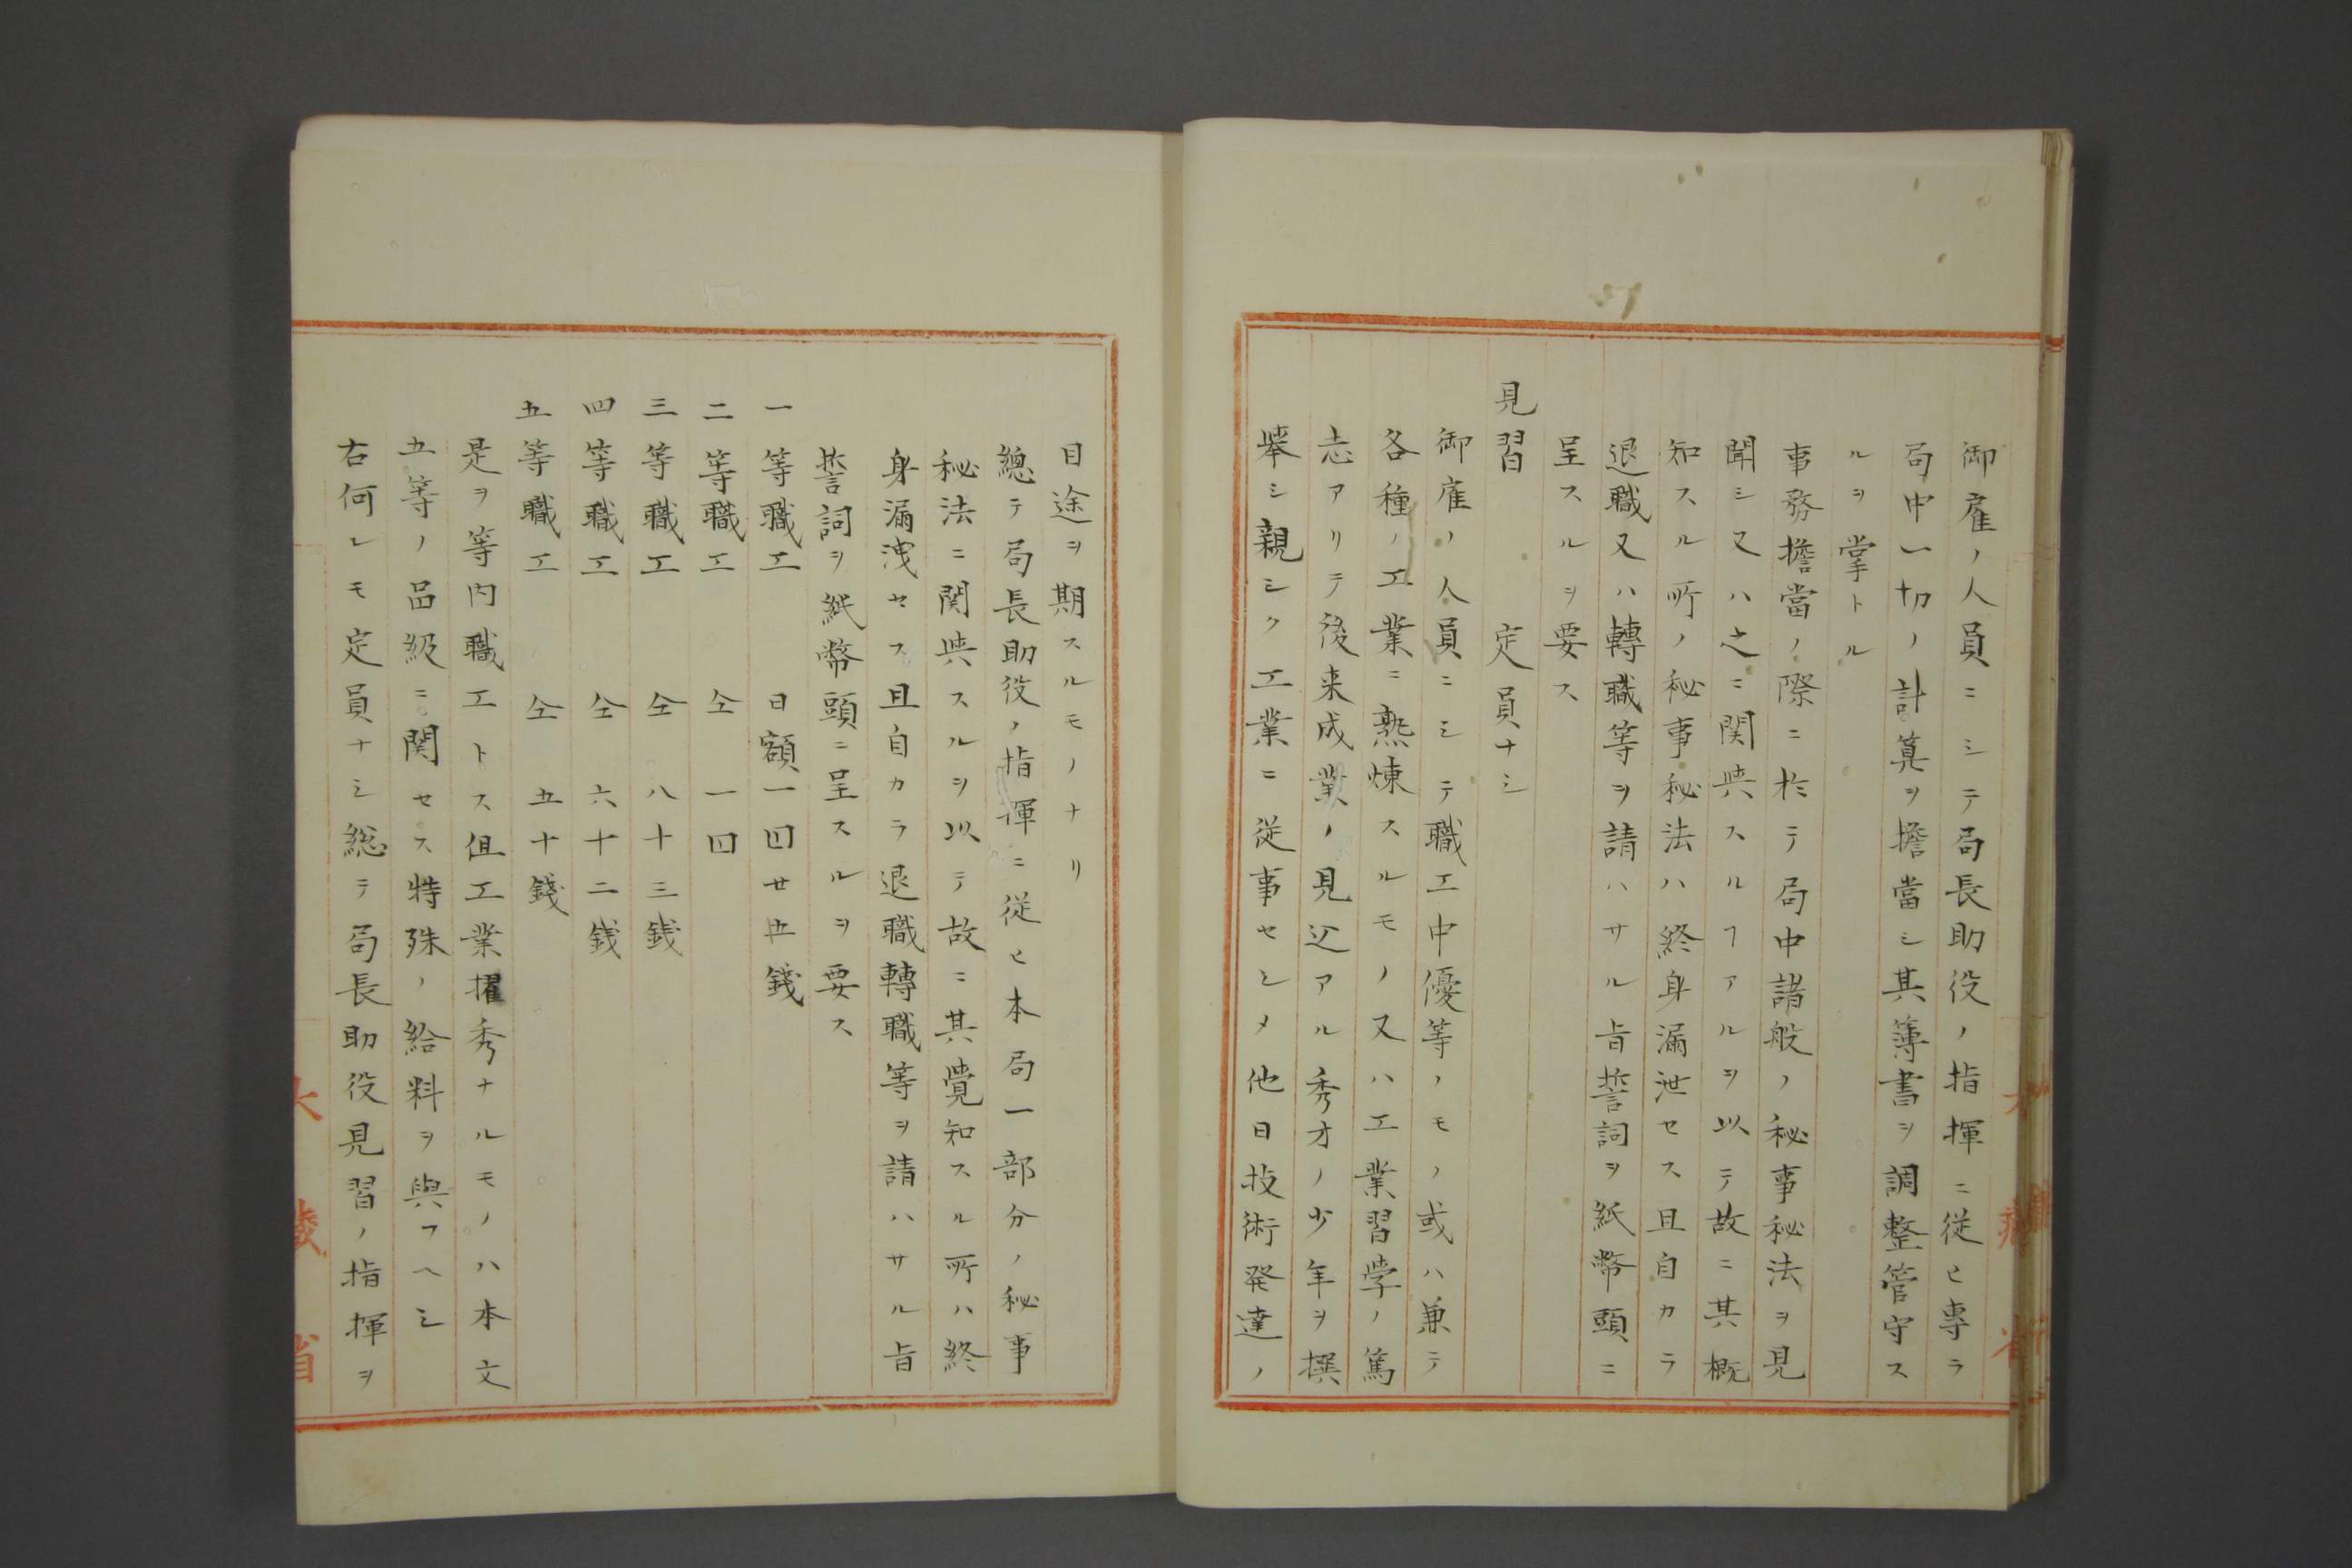 御雇ノ人員ニシテ局長助役ノ指揮ニ従ヒ専ラ
局中一切ノ計算ヲ擔當シ其簿書ヲ調整管守ス
ルヲ掌トル
事務擔當ノ際ニ於テ局中諸般ノ秘事秘法ヲ見
聞シ又ハ之ニ関与スルヿアルヲ以テ故ニ其概
知スル所ノ秘事秘法ハ終身漏泄セス且自カラ
退職又ハ轉職等ヲ請ハサル旨誓詞ヲ紙幣頭ニ
呈スルヲ要ス
見習　定員ナシ
御雇ノ人員ニシテ職工中優等ノモノ或ハ兼テ
各種ノ工業ニ熟煉スルモノ又ハ工業習学ノ篤
志アリテ後来成業ノ見込アル秀才ノ少年ヲ撰
挙シ親シク工業ニ従事セシメ他日技術発達ノ
目途ヲ期スルモノナリ
總テ局長助役ノ指揮ニ従ヒ本局一部分ノ秘事
秘法ニ関与スルヲ以テ故ニ其覺知スル所ハ終
身漏洩セス且自カラ退職轉職等ヲ請ハサル旨
誓詞ヲ紙幣頭ニ呈スルヲ要ス
一等職工　日額一円廿五錢
二等職工　仝　一円
三等職工　仝　八十三銭
四等職工　仝　六十二銭
五等職工　仝　五十錢
是ヲ等内職工トス但工業擢秀ナルモノハ本文
五等ノ品級ニ関セス特殊ノ給料ヲ與フヘシ
右何レモ定員ナシ総テ局長助役見習ノ指揮ヲ
大蔵省